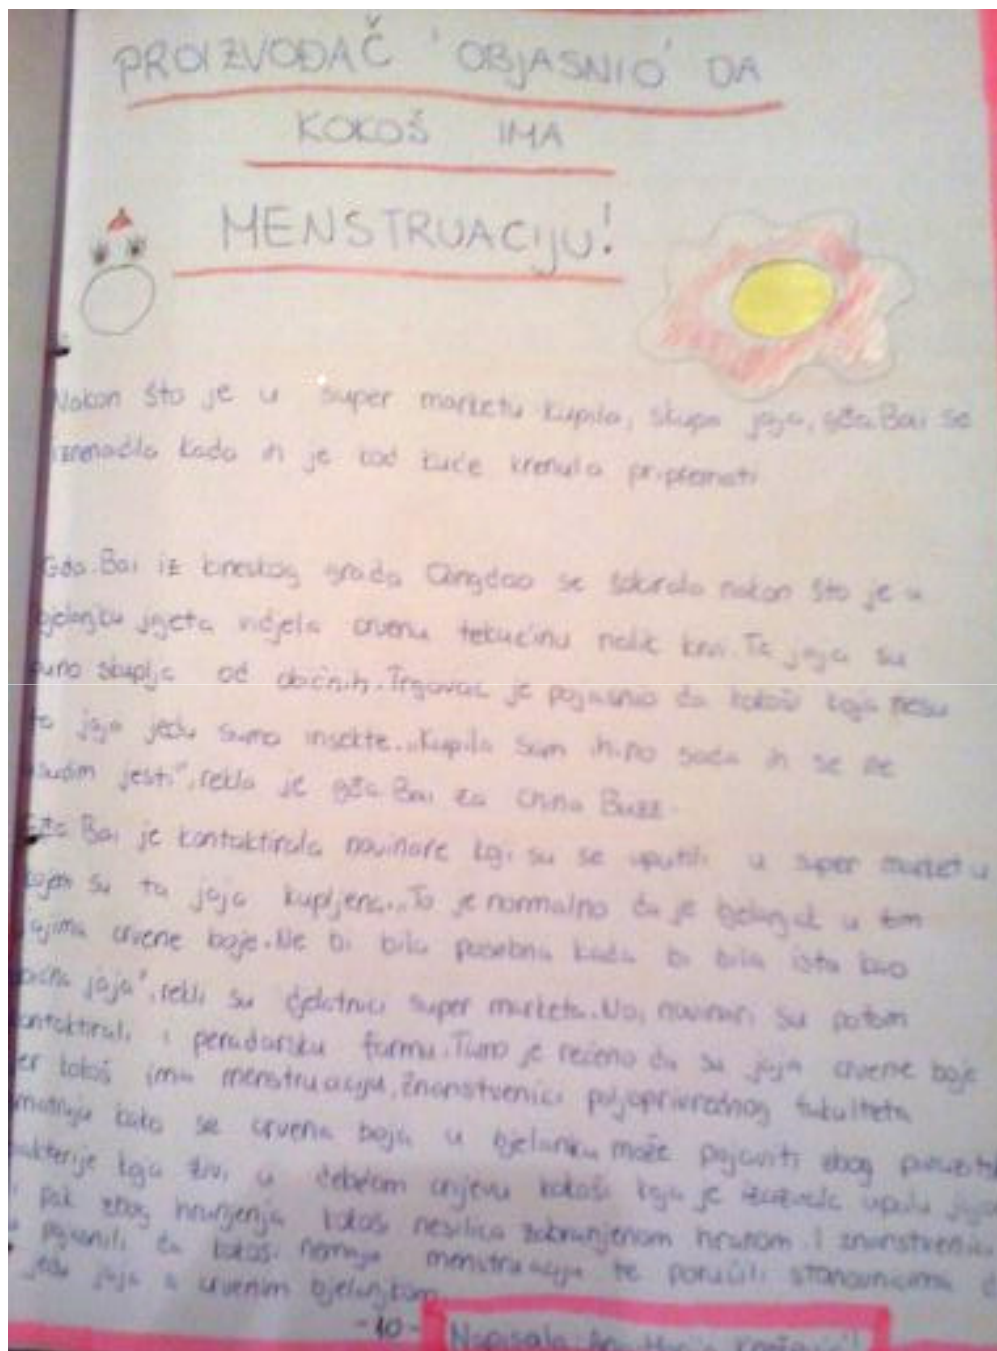 PROIZVOĐAČ 'OBJASNIO' DA
KOKOŠ IMA
MENSTRUACIJU!
Nakon što je u super marketu kupila, skupa jaja, gđa. Bai se
iznenadila kada ih je kod kuće krenula pripremati
Gđa. Bai iz kineskog grada Qingdao se šokirala nakon što je u
bjelanjku jajeta vidjela crvenu tekućinu nalik krvi. Ta jaja su
puno skuplja od običnih. Trgovac je pojasnio da kokoši koje nesu
ta jaja jedu samo insekte. „Kupila sam ih no sada ih se ne
usudim jesti", rekla je gđa Bai za China Buzz.
Gđa Bai je kontaktirala novinare koji su se uputili u super market u
kojem su ta jaja kupljena. „To je normalno da je bjelanjak u tim
jajima crvene boje. Ne bi bila posebna kada bi bila ista kao
obična jaja", rekli su djelatnici super marketa. No, novinari su potom
kontaktirali i peradarsku farmu. Tamo je rečeno da su jaja crvene boje
jer kokoš ima menstruaciju, znanstvenici poljoprivrednog fakulteta
smatraju kako se crvena boja u bjelanku može pojaviti zbog
bakterije koja živi u debelom crijevu kokoši koja je izazvala upalu
pak zbog hranjenja kokoši nesilica zabranjenom hranom. I znanstvenici
pojasnili da kokoši nemaju menstruaciju te poručili stanovnicima
jedu jaja s crvenim bjelanjkom
-10-
Napisala: